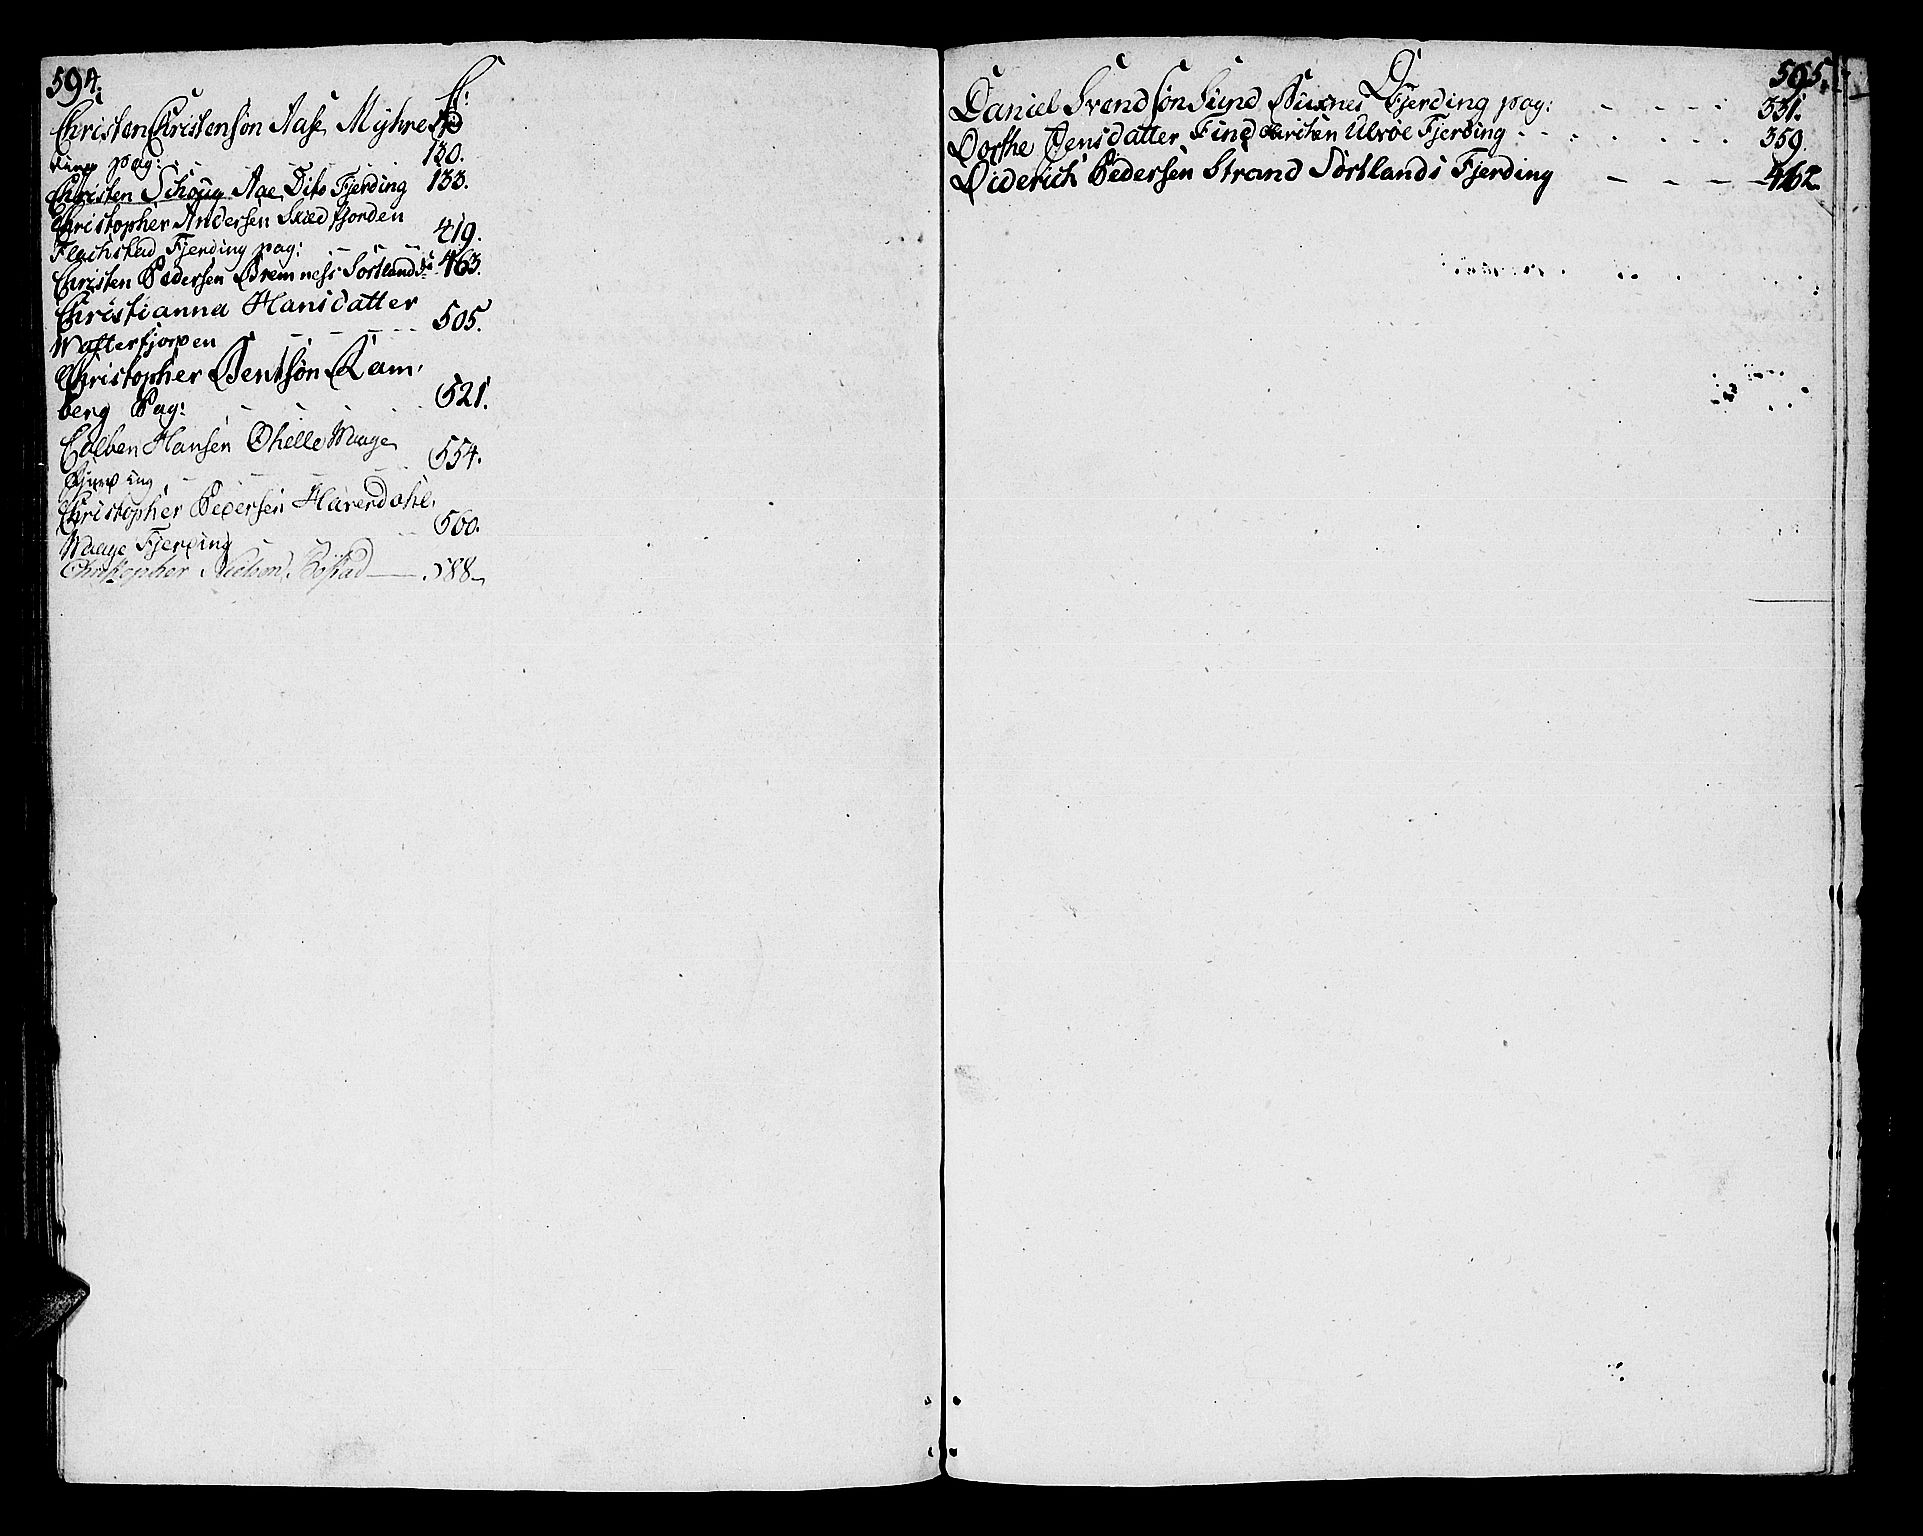 594.
C:
Christen Christensøn Aase Myhre
pag: 130.
Christen Schoug Aae Dito Fjerding 133.
Christopher Andersen Skiedfjorden
Flachstad Fjerding pag: 419.
Christen Pedersen Bremness Sortlands 463.
Christianna Hansdatter
Watterfjorden 505.
Christopher Bentsøn Ram,
berg Pag: 521.
Colben Hansen Ohelle Waage
Fjerding 554.
Christopher Pedersen Haverdahl,
Waage Fjerding 560.
Christopher Nielsen, Bøstad 588
595.
D:
Daniel Svendsøn Sund Buxnes Fjerding pag: 331.
Dorthe Jensdatter Find Ulvøe Fjerding 359.
Diderich Pedersen Strand Sortlands Fjerding 462